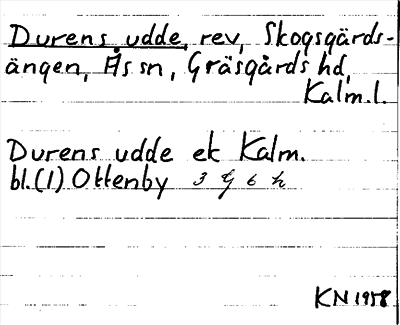 Durens udde, rev, Skogsgärds-
ängen, Ås sn, Gräsgårds hd,
Kalm.l.
Durens udde ek Kalm.
bl.(1) Ottenby 3 G 6 h
KN 1958